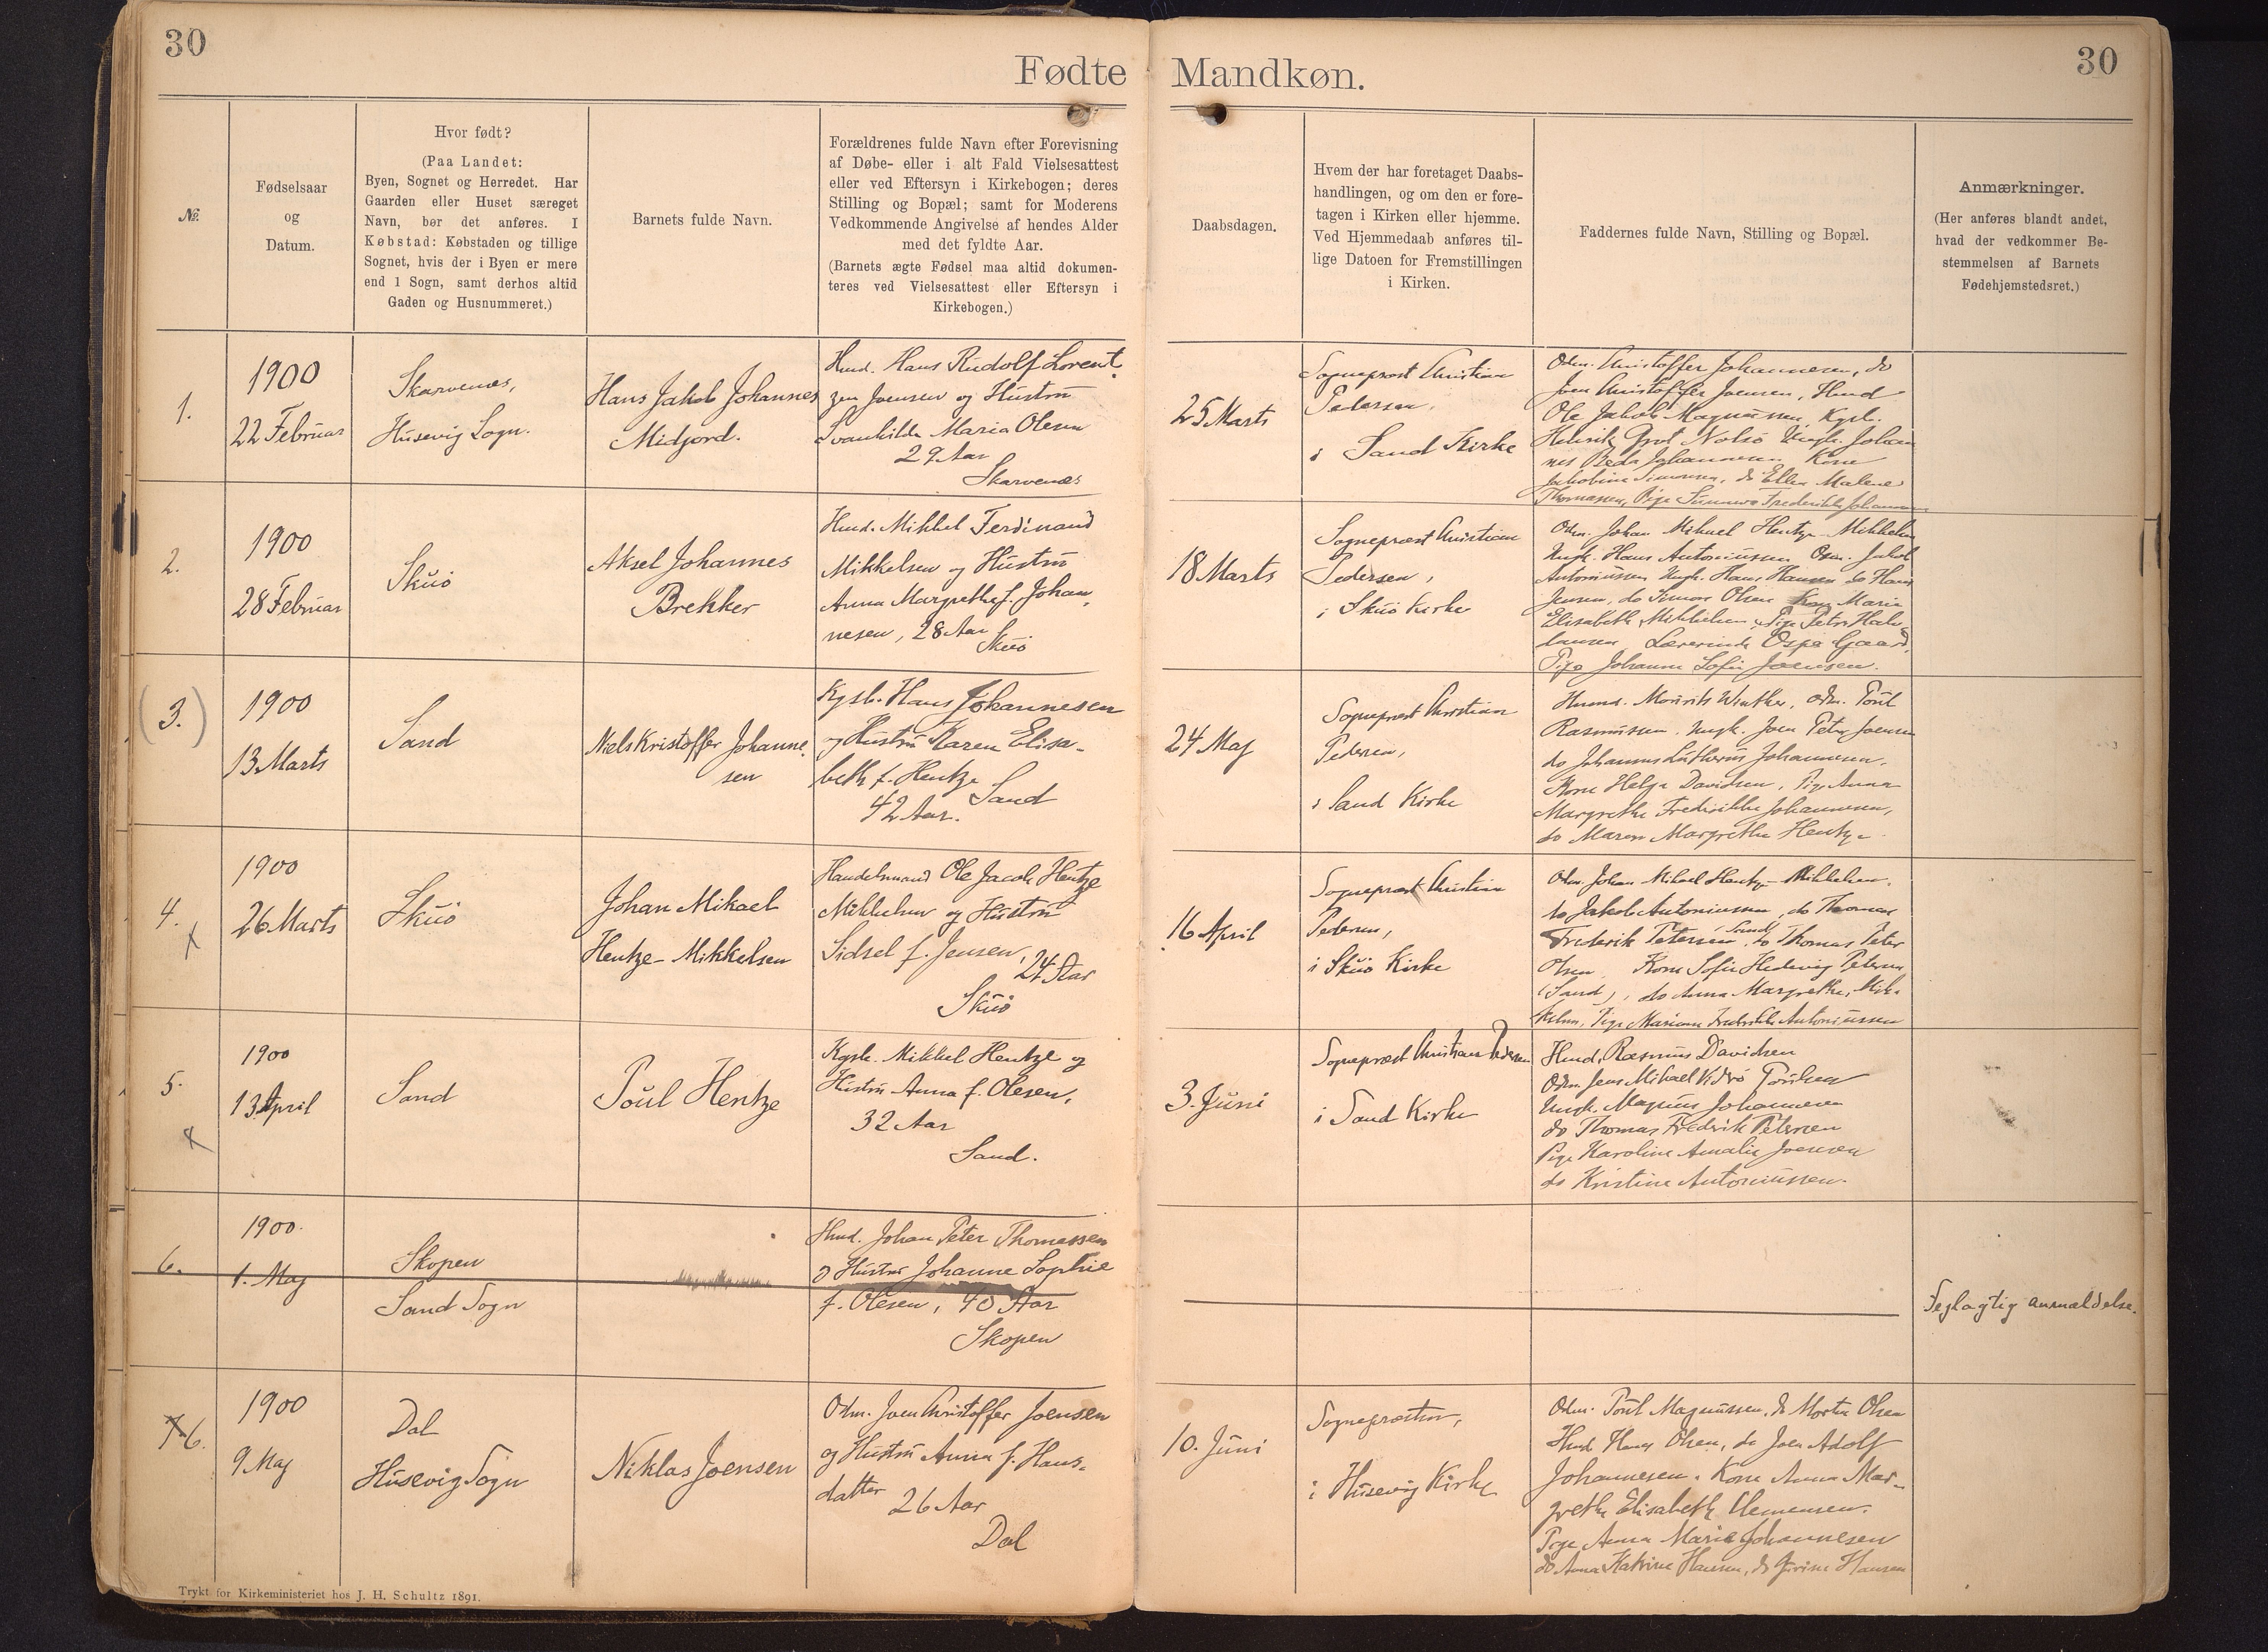 30
Fødte
Mandkøn.
30
№.
Fødselsaar
og
Datum.
Hvor født?
(Paa Landet:
Byen, Sognet og Herredet. Har
Gaarden eller Huset særeget
Navn, bør det anføres. I
Købstad: Købstaden og tillige
Sognet, hvis der i Byen er mere
end 1 Sogn, samt derhos altid
Gaden og Husnummeret.)
Barnets fulde Navn.
Forældrenes fulde Navn efter Forevisning
af Døbe- eller i alt Fald Vielsesattest
eller ved Eftersyn i Kirkebogen; deres
Stilling og Bopæl; samt for Moderens
Vedkommende Angivelse af hendes Alder
med det fyldte Aar.
(Barnets ægte Fødsel maa altid dokumen-
teres ved Vielsesattest eller Eftersyn i
Kirkebogen.)
Daabsdagen.
Hvem der har foretaget Daabs-
handlingen, og om den er fore-
tagen i Kirken eller hjemme.
Ved Hjemmedaab anføres til-
lige Datoen for Fremstillingen
i Kirken.
Faddernes fulde Navn, Stilling og Bopæl.
Anmærkninger.
(Her anføres blandt andet,
hvad der vedkommer Be-
stemmelsen af Barnets
Fødehjemstedsret.)
1.
1900
22 Februar
Skarvenæs,
Húsevig Sogn.
Hans Jakob Johannes
Midjord.
Hmd. Hans Rudolf Lorent-
zen Joensen og Hústrú
Svanhilda Maria Olesen
29 Aar
Skarvenæs
25 Marts
Sognepræst Christian
Pedersen,
i Sand Kirke
Odm. Christoffer Johannesen, do
Joen Christoffer Joensen, Hmd
Ole Jakob Magnússen, Kgsb.
Henrik Grot Nolsö Ungk. Johan
nes Beda Johannesen Kone
Jakobine Simonsen, do Ellen Malene
Thomassen, Pige Súnneva Frederikke Johannesen
2.
1900
28 Februar
Skúö
Aksel Johannes
Brekker
Hmd. Mikkel Ferdinand
Mikkelsen og Hústrú
Anna Margrethe f. Johan-
nesen, 28 Aar
Skúö
18 Marts
Sognepræst Christian
Pedersen,
i Skúö Kirke
Odm. Johan Mikael Hentze-Mikkelsen
Ungk. Hans Antoniússen Odm. Jakob
Antoniússen Ungk. Hans Hansen do Hans
Jensen, do Olsen Kone Maria
Elisabeth Mikkelsen, Pige Petra
Lærerinde Gaard,
Pige Johanne Sofie Joensen.
(3.)
1900
13 Marts
Sand
Niels Kristoffer Johanne-
sen
Kgsb. Hans Johannesen
og Hústrú Karen Elisa-
beth f. Hentze
42 Aar. Sand
24 Maj
Sognepræst Christian
Pedersen,
i Sand Kirke
Winther, Odm. Poúl
Rasmússen. Ungk. Joen Peter Joensen
do Johannes Lútherús Johannesen,
Kone Helga Davidsen, Pige Anna
Margrethe Frederikke Johannesen,
do Maren Margrethe Hentze.
4.
1900
26 Marts
Skúö
Johan Mikael
Hentze-Mikkelsen
Handelsmand Ole Jacob Hentze
Mikkelsen og Hústrú
Sidsel f. Jensen,
24 Aar
Skúö
16 April
Sognepræst Christian
Pedersen,
i Skúö Kirke
Odm. Johan Mikael Hentze-Mikkelsen,
do Jakob Antoniússen, do Thomas
Frederik Petersen (Sand), do Thomas Peter
Olsen, Kone Sofie Hedevig Petersen
(Sand), do Anna Margrethe Mik-
kelsen, Pige Mariane Frederikke Antoniússen
5.
1900
13 April
Sand
Poúl Hentze
Kgsb. Mikkel Hentze og
Hústrú Anna f. Olesen,
32 Aar
Sand.
3. Júni
Sognepræst Christian Pedersen
i Sand Kirke
Hmd. Rasmús Davidsen
Odm. Jens Mikael Poúlsen
Ungk. Magnús Johannesen
do Thomas Frederik Petersen
Pige Karoline Amalie Joensen
do Kristine Antoniússen.
6.
1900.
1. Maj
Skopen
Sand Sogn
Hmd. Johan Peter Thomassen
og Hústrú Johanne Sophie
f. Olesen, 40 Aar
Skopen
Fejlagtig anmældelse.
7 6.
1900
9 Maj
Dal
Húsevig Sogn
Niklas Joensen
Odm. Joen Christoffer Joensen
og Hústrú Anna f. Hans-
datter 26 Aar
Dal
10. Júni
Sognepræsten,
i Húsevig Kirke
Odm. Poúl Magnússen, do Morten Olsen
Hmd. Hans Olsen, do Joen Adolf
Johannesen. Kone Anna Mar-
grethe Elisabeth Clemensen.
Pige Anna Maria Johannesen
do Anna Katrine Hansen, do Hansen
Trykt for Kirkeministeriet hos J. H. Schultz 1891.